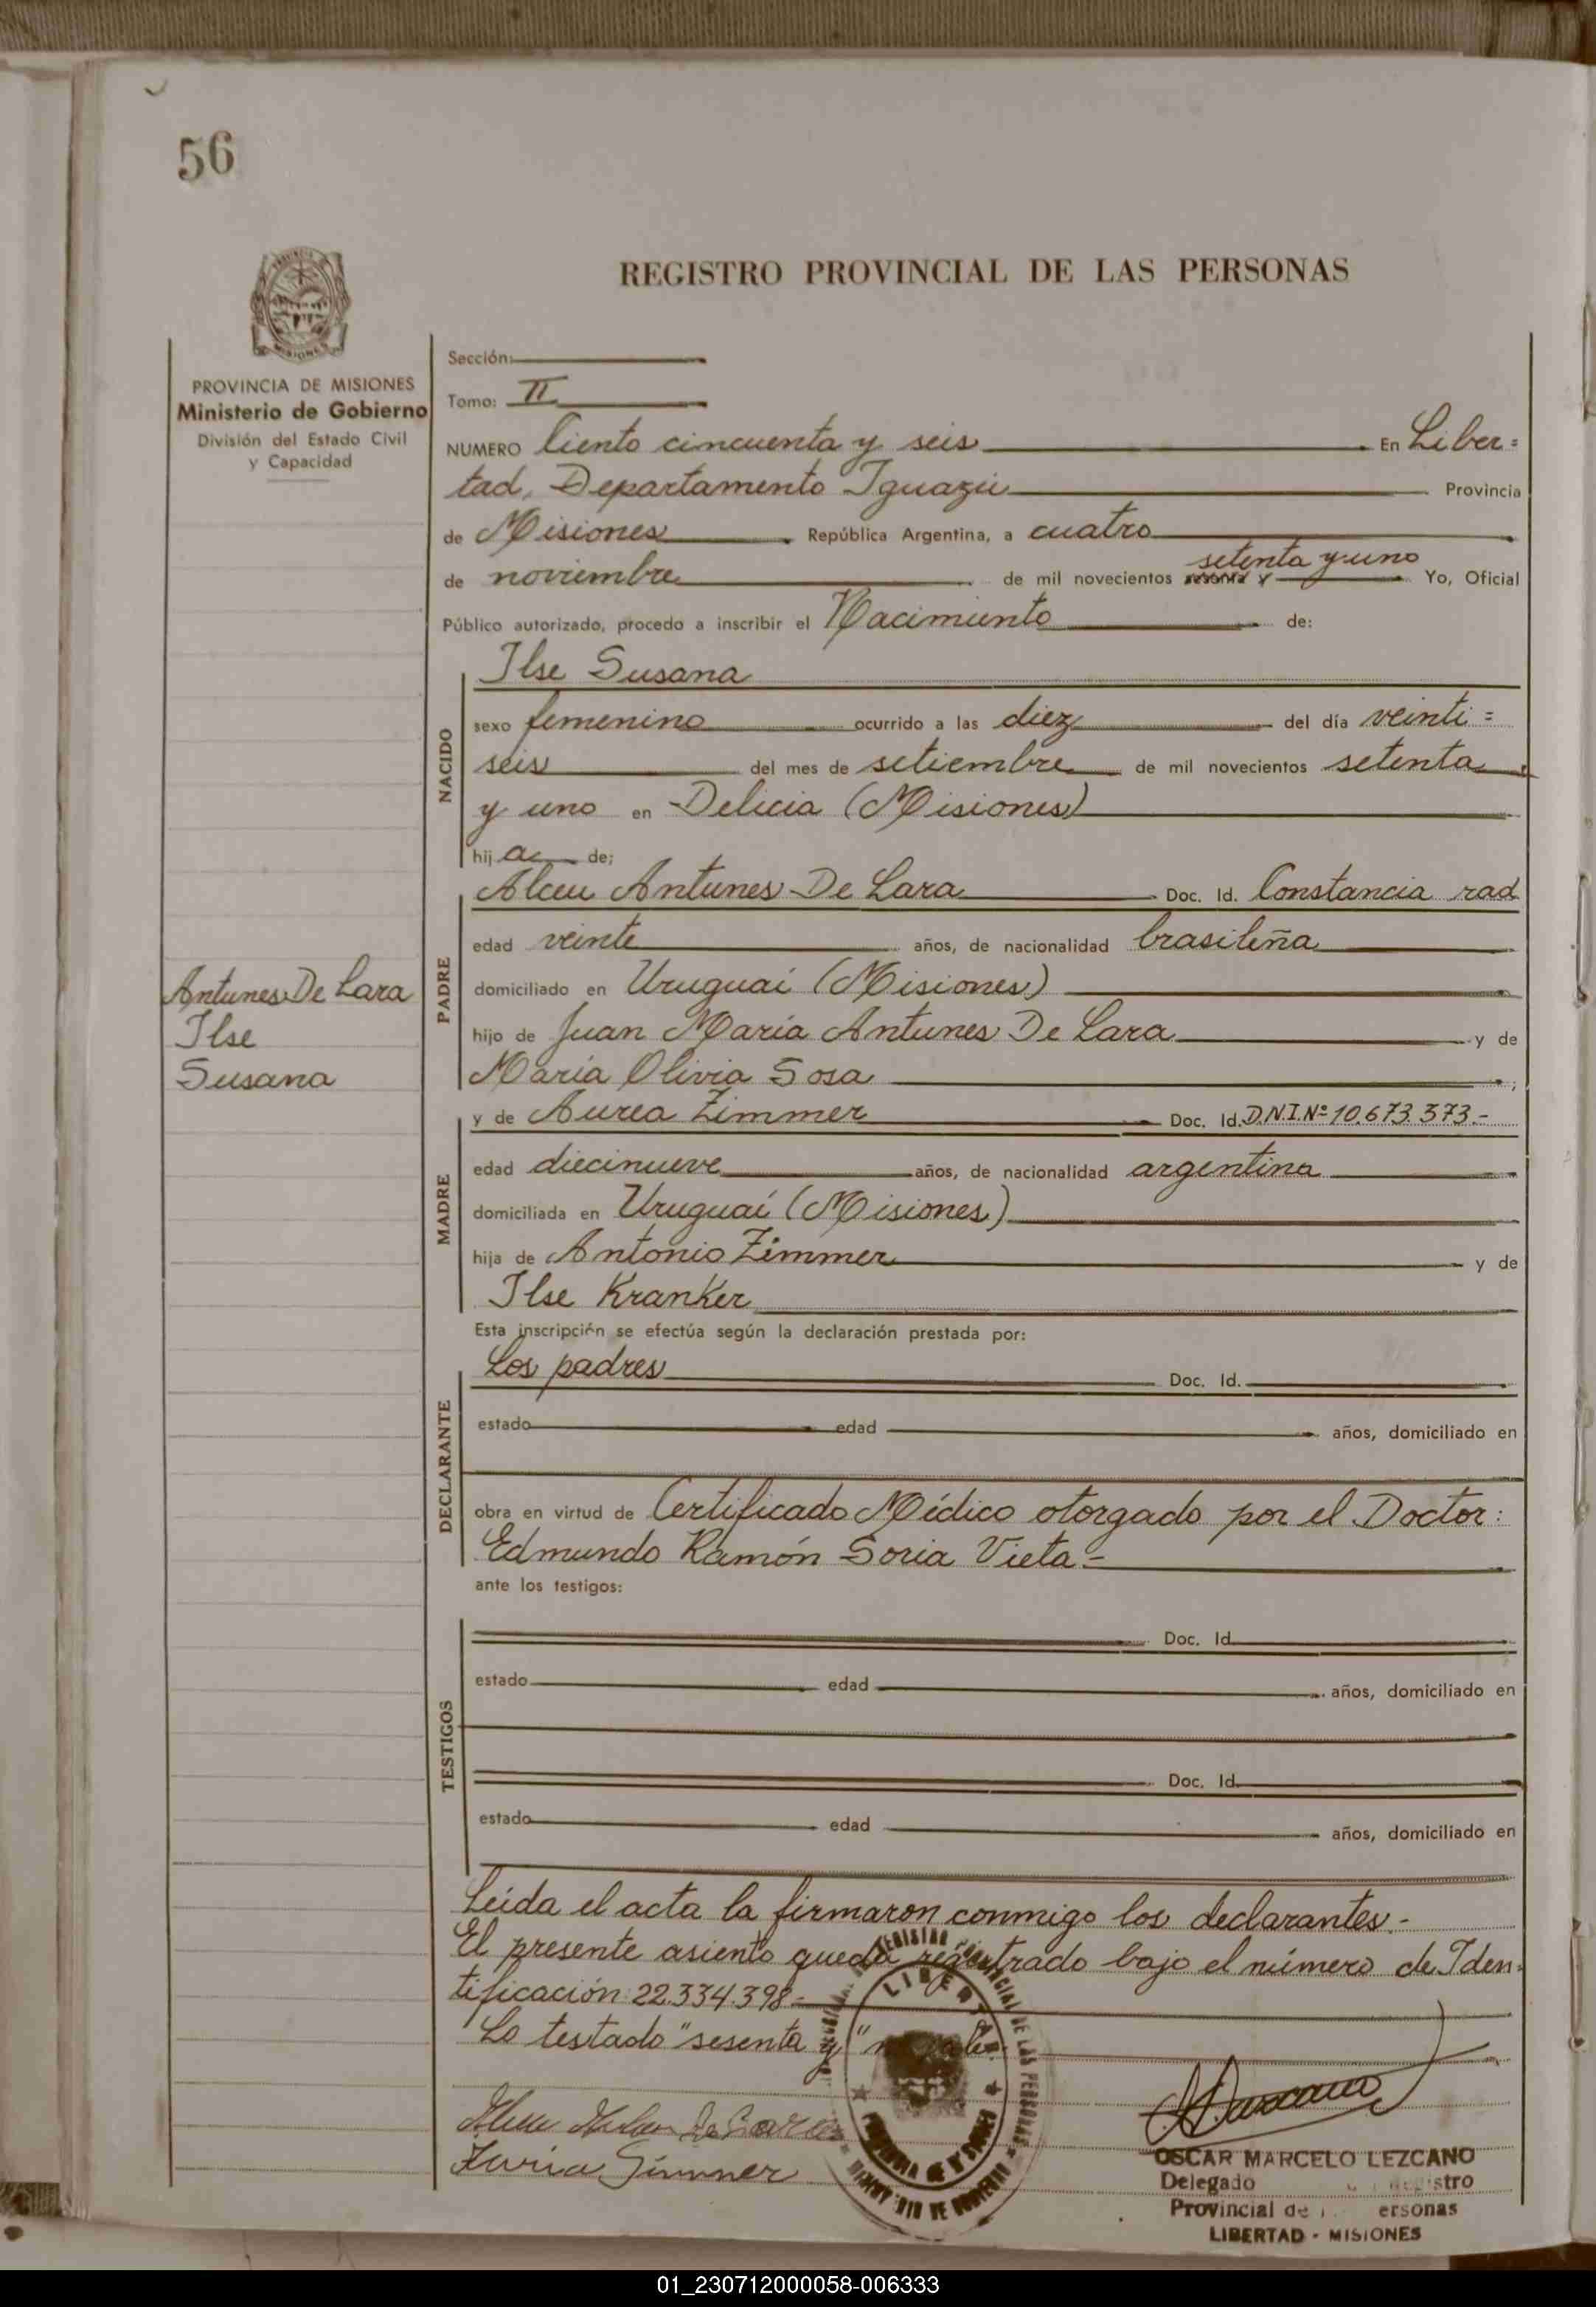 56
REGISTRO PROVINCIAL DE LAS PERSONAS
MISIONES
PROVINCIA DE MISIONES
Ministerio de Gobierno
División del Estado Civil
y Capacidad
Sección:
Tomo: II
NUMERO Ciento cincuenta y seis En Liber=
tad, Departamento Iguazú Provincia
de Misiones República Argentina, a cuatro
de noviembre de mil novecientos sesenta y setenta y uno Yo, Oficial
Público autorizado, procedo a inscribir el Nacimiento de:
Ilse Susana
NACIDO
sexo femenino ocurrido a las diez del día veinti=
seis del mes de setiembre de mil novecientos setenta
y uno en Delicia (Misiones)
hija de;
Alceu Antunes De Lara Doc. Id. Constancia rad
PADRE
edad veinte años, de nacionalidad brasileña
domiciliado en Uruguaí (Misiones)
hijo de Juan María Antunes De Lara y de
María Olivia Sosa ;
Antunes De Lara
Ilse
Susana
y de Aurea Zimmer Doc. Id. D.N.I.Nº 10.673.373.-
MADRE
edad diecinueve años, de nacionalidad argentina
domiciliada en Uruguaí (Misiones)
hija de Antonio Zimmer y de
Ilse Kranker
Esta inscripción se efectúa según la declaración prestada por:
Los padres Doc. Id.
DECLARANTE
estado edad años, domiciliado en
obra en virtud de Certificado Médico otorgado por el Doctor:
Edmundo Ramón Soria Vieta-
ante los testigos:
TESTIGOS
Doc. Id.
estado edad años, domiciliado en
Doc. Id.
estado edad años, domiciliado en
Leída el acta la firmaron conmigo los declarantes.-
El presente asiento queda registrado bajo el número de Iden-
tificación 22.334.398-
Lo testado "sesenta y"
LIBERTAD
DE LAS PERSONAS
OSCAR MARCELO LEZCANO
Delegado Registro
Provincial de ersonas
LIBERTAD - MISIONES
01_230712000058-006333